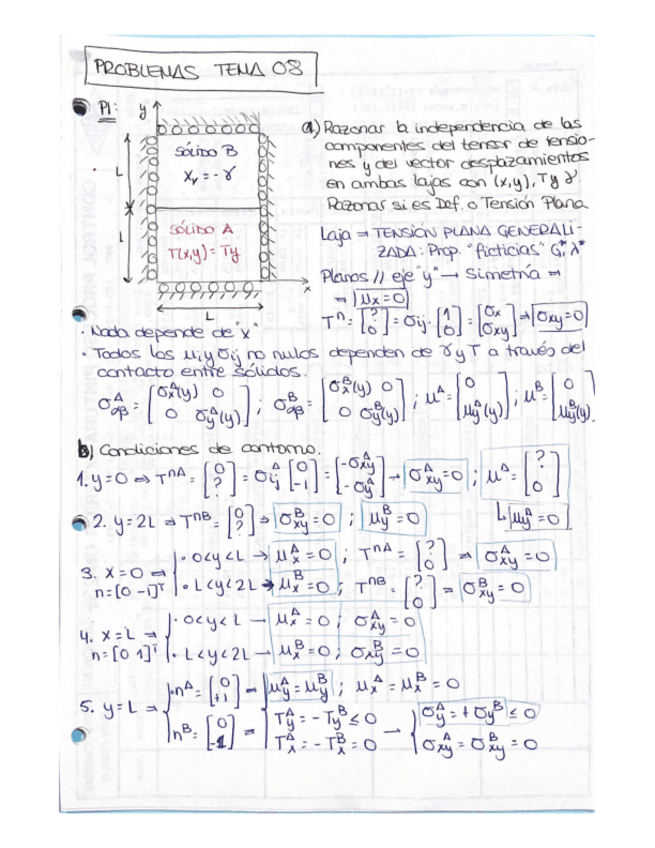 PROBLEMAS TEMA 08
P1:
y
L
L
SÓLIDO B
Xᵥ = -γ
SÓLIDO A
T(x,y) = Ty
x
L
a) Razonar la independencia de las
componentes del tensor de tensio-
nes y del vector desplazamientos
en ambas lajas con (x,y), T y γ.
Razonar si es Def. o Tensión Plana
Laja ⇒ TENSIÓN PLANA GENERALI-
ZADA: Prop. "ficticias" G*, λ*
Planos // eje "y" → Simetría ⇒
⇒ μx = 0
Tⁿ = [? 0] = σij · [1 0] = [σx σxy] ⇒ σxy = 0
· Nada depende de "x"
· Todos los μi y σij no nulos dependen de γ y T a través del
contacto entre sólidos.
σᴬαβ = [σxᴬ(y) 0; 0 σyᴬ(y)] ; σᴮαβ = [σxᴮ(y) 0; 0 σyᴮ(y)] ; μᴬ = [0 μyᴬ(y)] ; μᴮ = [0 μyᴮ(y)]
b) Condiciones de contorno.
1. y=0 ⇒ Tⁿᴬ = [0 ?] = σijᴬ [0 -1] = [-σxyᴬ -σyᴬ] → σxyᴬ = 0 ; μᴬ = [? 0]
↳ μyᴬ = 0
2. y=2L ⇒ Tⁿᴮ = [0 ?] ⇒ σxyᴮ = 0 ; μyᴮ = 0
3. x=0 ⇒ n=[0 -1]ᵀ
· 0<y<L → μxᴬ = 0 ; Tⁿᴬ = [? 0] ⇒ σxyᴬ = 0
· L<y<2L → μxᴮ = 0 ; Tⁿᴮ = [? 0] = σxyᴮ = 0
4. x=L ⇒ n=[0 1]ᵀ
· 0<y<L → μxᴬ = 0 ; σxyᴬ = 0
· L<y<2L → μxᴮ = 0 ; σxyᴮ = 0
5. y=L ⇒
· nᴬ = [0 +1] ⇒ μyᴬ = μyᴮ ; μxᴬ = μxᴮ = 0
nᴮ = [0 -1] = Tyᴬ = -Tyᴮ ≤ 0 → σyᴬ = +σyᴮ ≤ 0
Txᴬ = -Txᴮ = 0 σxyᴬ = σxyᴮ = 0